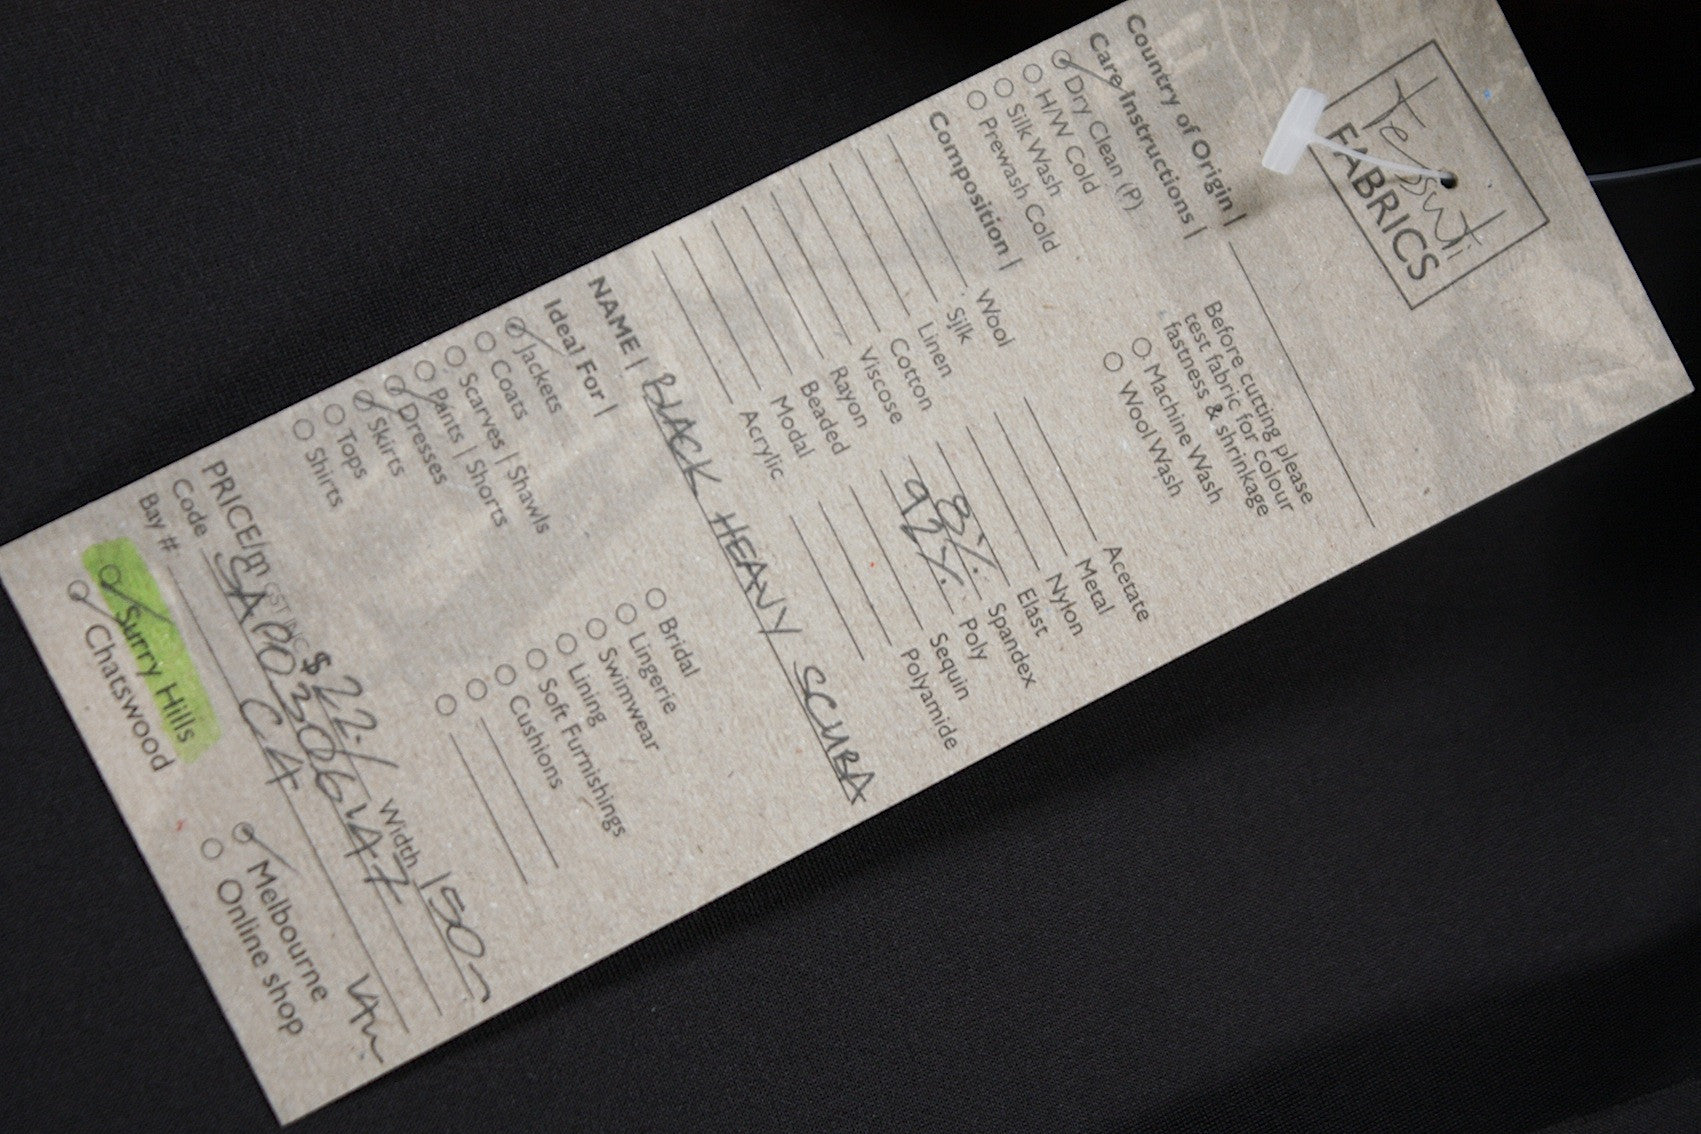 Tessuti
FABRICS
Country of Origin |
Care Instructions |
Dry Clean (P)
H/W Cold
Silk Wash
Prewash Cold
Before cutting please
test fabric for colour
fastness & shrinkage
Machine Wash
Wool Wash
Composition |
Wool
Silk
Linen
Cotton
Viscose
Rayon
Beaded
Modal
Acrylic
Acetate
Metal
Nylon
Elast
8% Spandex
92% Poly
Sequin
Polyamide
NAME | BLACK HEAVY SCUBA
Ideal For |
Jackets
Coats
Scarves | Shawls
Pants | Shorts
Dresses
Skirts
Tops
Shirts
Bridal
Lingerie
Swimwear
Lining
Soft Furnishings
Cushions
PRICE/m $ 22.- Width 150-
Code
Bay # C4
Surry Hills
Chatswood
Melbourne
Online shop